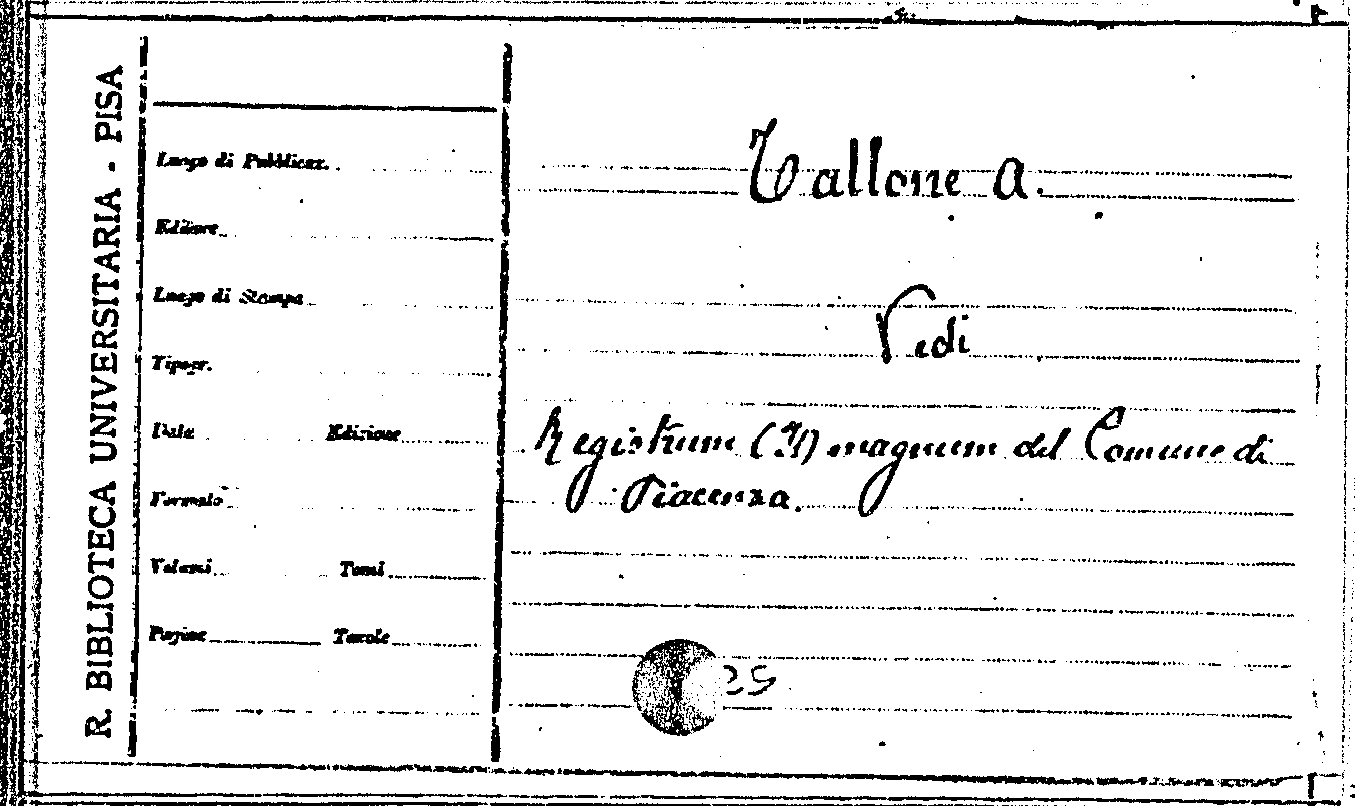 R. BIBLIOTECA UNIVERSITARIA - PISA
Luogo di Pubblicaz.
Editore
Luogo di Stampa
Tipogr.
Data Edizione
Formato
Volumi Tomi
Pagine Tavole
Tallone A.
Vedi
Registrum (Il) magnum del Comune di
Piacenza.
25